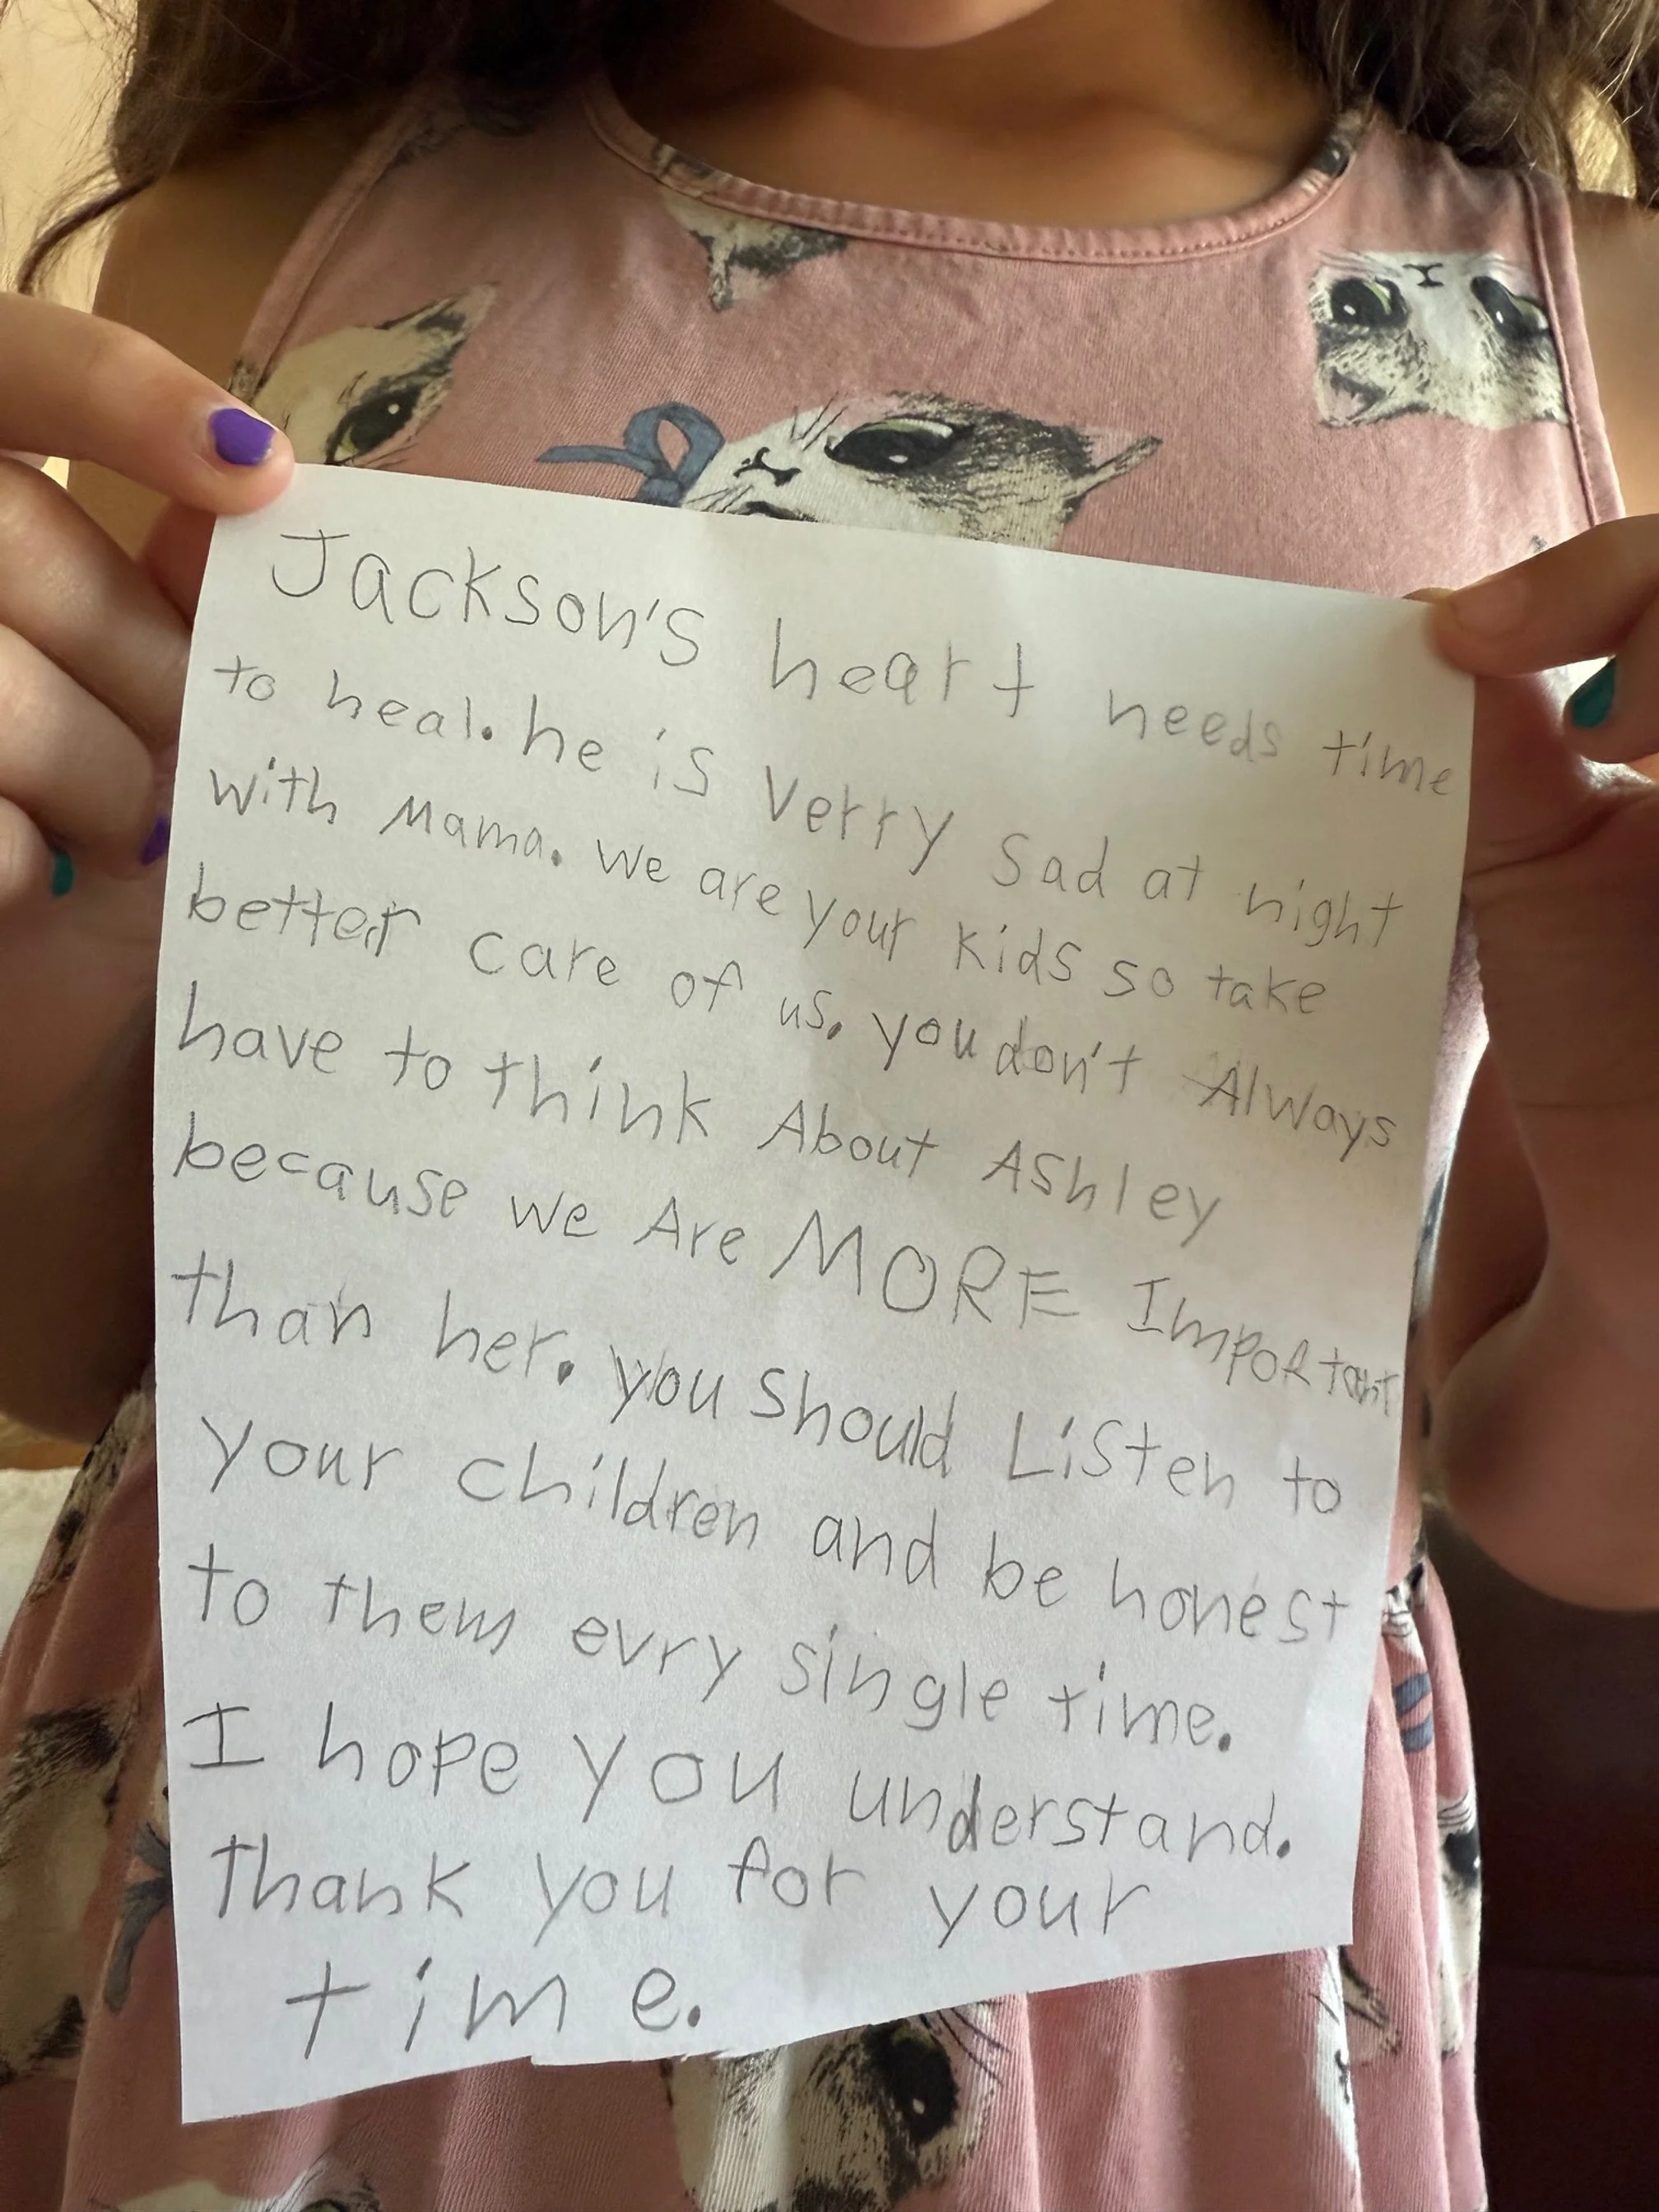 Jackson's heart needs time
to heal. he is Verry Sad at night
with Mama. We are your kids so take
better care of us. you don't Always
have to think About Ashley
because we Are MORE Important
than her. you should Listen to
your children and be honest
to them evry single time.
I hope you understand.
Thank you for your
time.